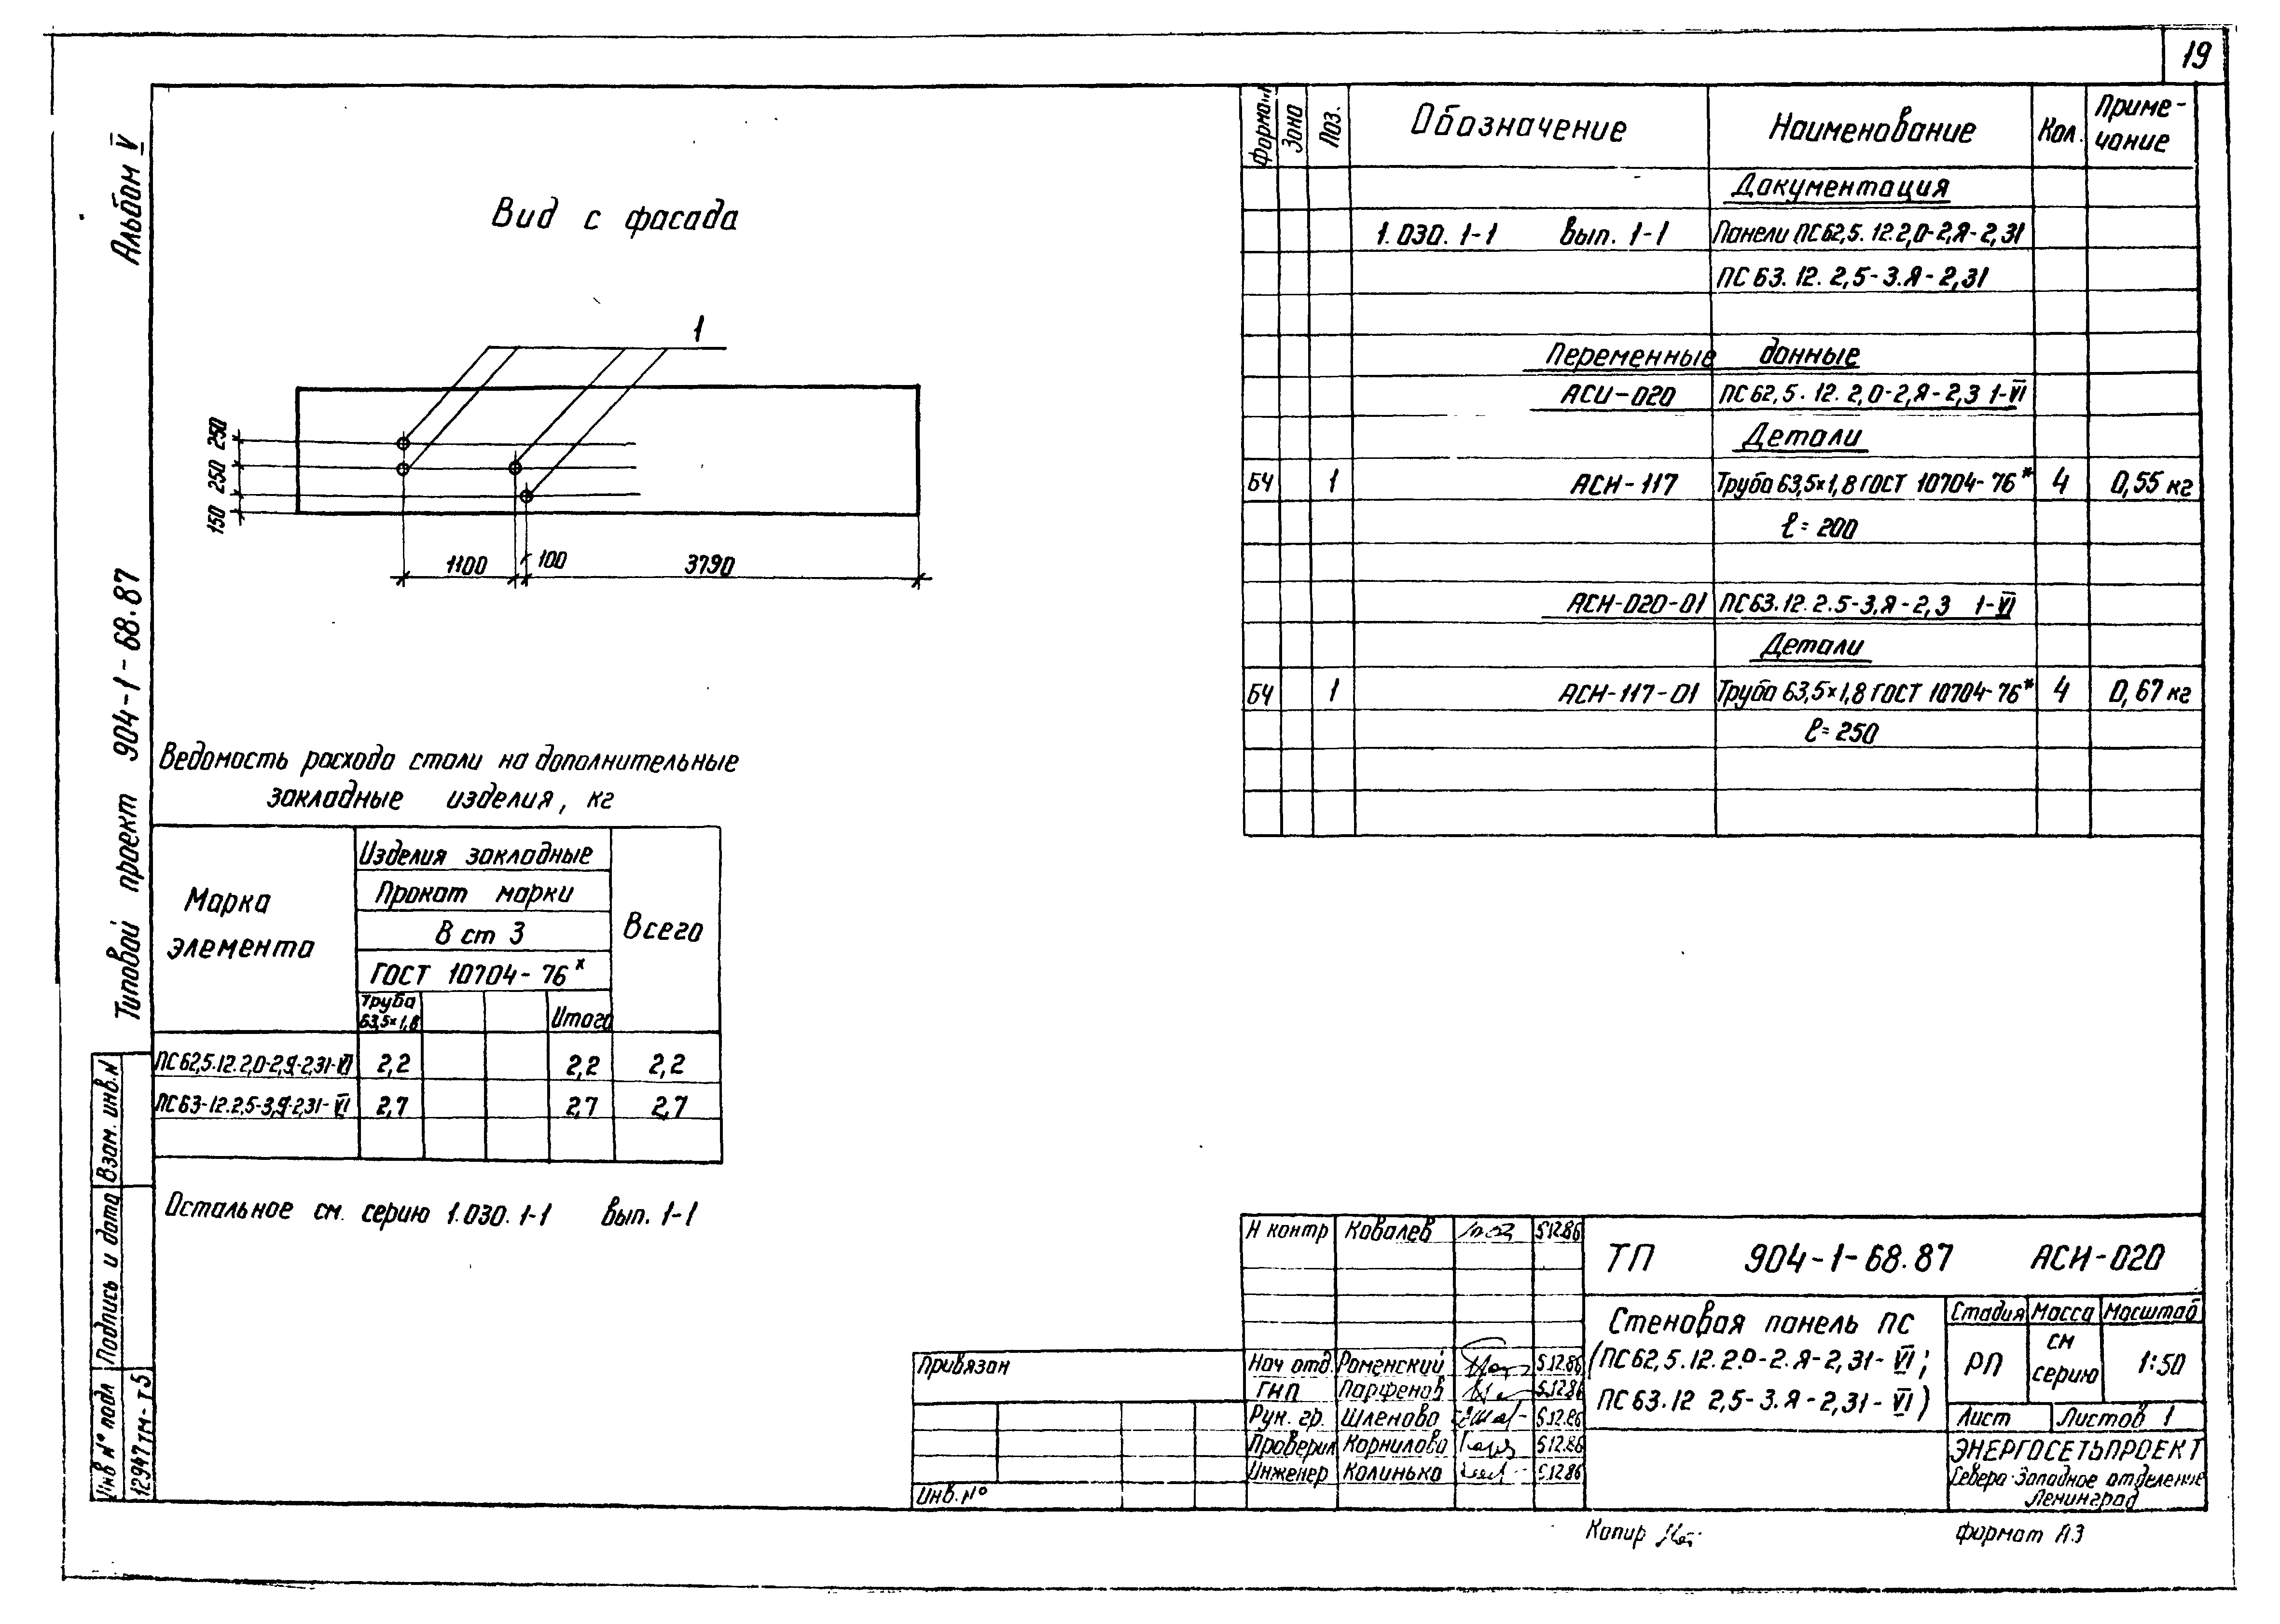 19
Альбом V
Типовой проект 904-1-68.87
Взам. инв.N
Подпись и дата
Инв N° подл
12947тм-т5
Вид с фасада
1
250
250
150
1100
100
3790
Формат
Зона
Поз.
Обозначение
Наименование
Кол.
Приме-
чание
Документация
1.030.1-1 Вып. 1-1 Панели ПС62,5.12.2,0-2,Я-2,31
ПС 63.12.2,5-3.Я-2,31
Переменные данные
АСИ-020 ПС62,5.12.2,0-2,Я-2,3 1-VI
Детали
БЧ 1 АСИ-117 Труба 63,5×1,8 ГОСТ 10704-76* 4 0,55 кг
ℓ=200
АСИ-020-01 ПС63.12.2.5-3.Я-2,3 1-VI
Детали
БЧ 1 АСИ-117-01 Труба 63,5×1,8 ГОСТ 10704-76* 4 0,67 кг
ℓ=250
Ведомость расхода стали на дополнительные
закладные изделия, кг
Марка
элемента
Изделия закладные
Прокат марки
В ст 3
ГОСТ 10704-76*
Труба
63,5×1,8
Итого
Всего
ПС62,5.12.2,0-2,Я-2,31-VI 2,2 2,2 2,2
ПС63-12.2,5-3,Я-2,31-VI 2,7 2,7 2,7
Остальное см. серию 1.030.1-1 вып. 1-1
Привязан
Инв.N°
Н контр Ковалев 5.12.86
Нач отд. Роменский 5.12.86
ГИП Парфенов 5.12.86
Рук. гр. Шленова 5.12.86
Проверил Корнилова 5.12.86
Инженер Калинько 5.12.86
ТП 904-1-68.87 АСИ-020
Стеновая панель ПС
(ПС62,5.12.2.0-2.Я-2,31-VI;
ПС63.12 2,5-3.Я-2,31-VI)
Стадия Масса Масштаб
РП см серию 1:50
Лист Листов 1
ЭНЕРГОСЕТЬПРОЕКТ
Северо-Западное отделение
Ленинград
Копир
формат А3